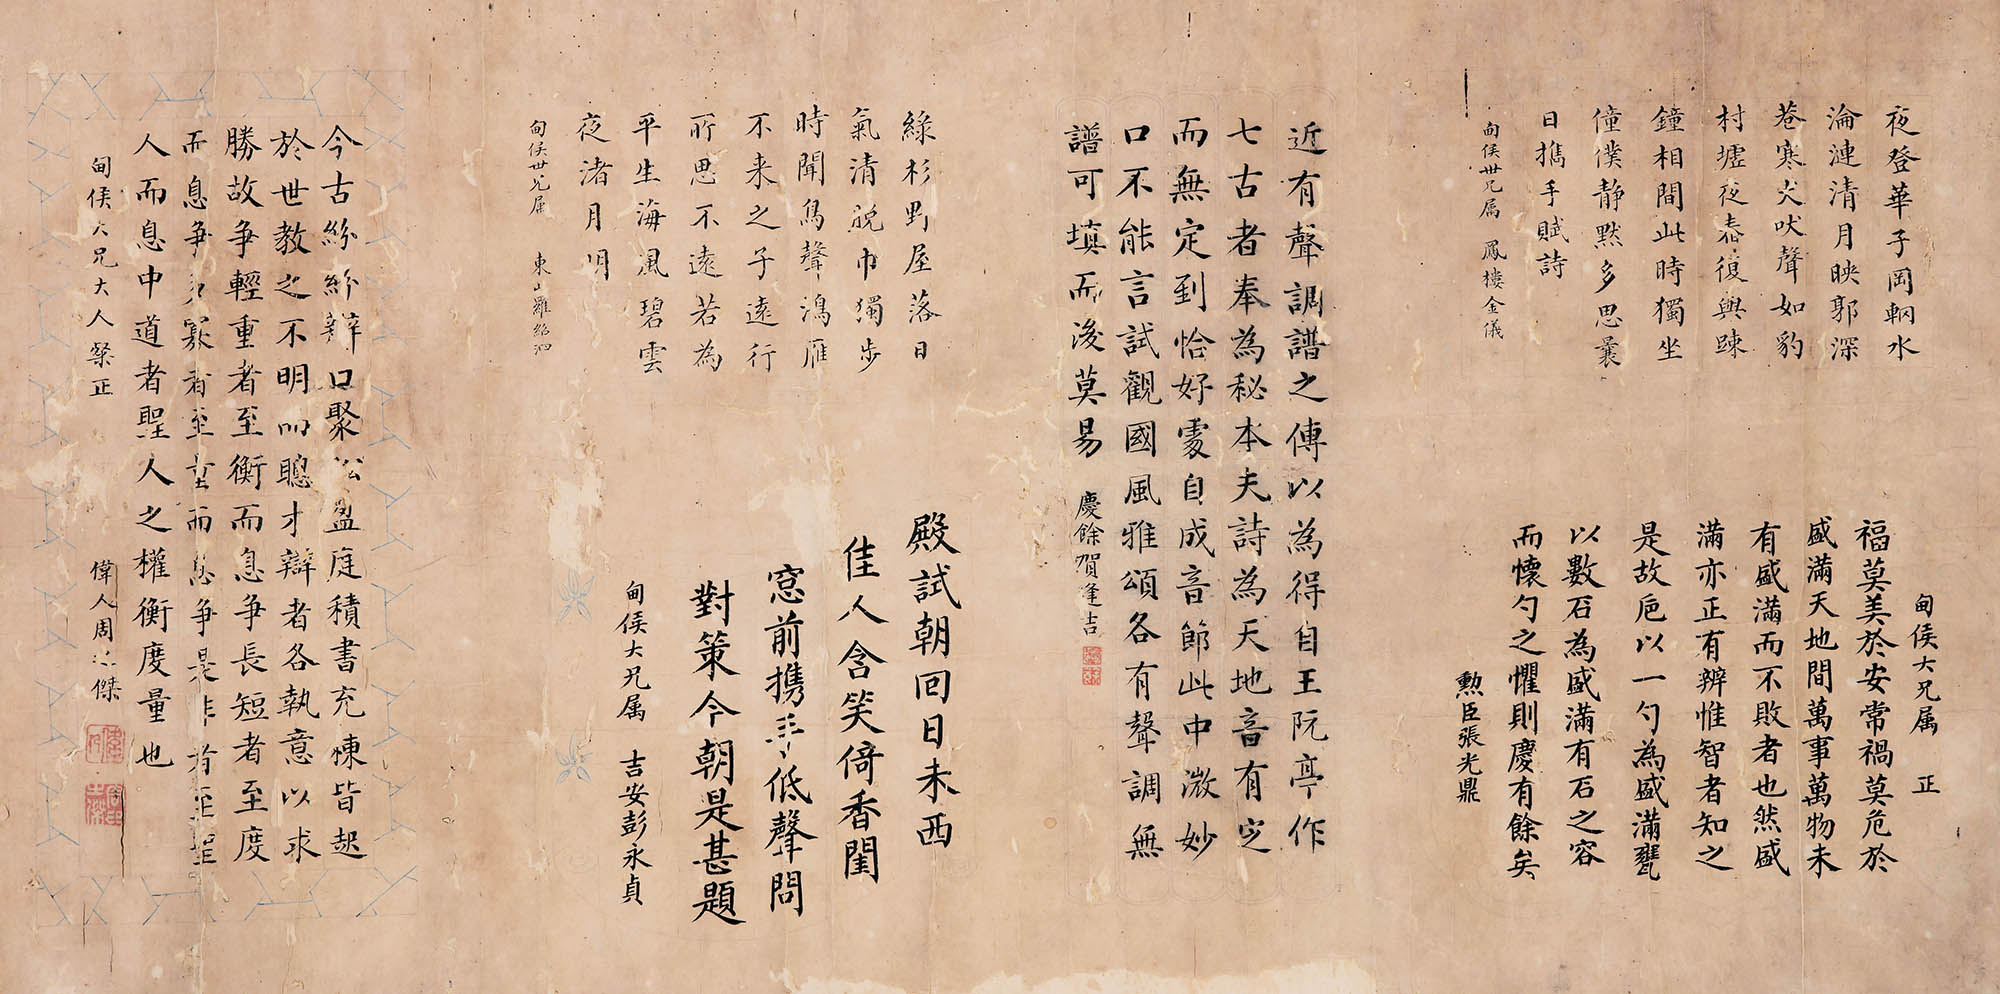 夜登華子岡輞水
淪漣清月映郭深
巷寒犬吠聲如豹
村墟夜舂復與踈
鐘相間此時獨坐
僮僕静黙多思曩
日擕手賦詩
甸侯世兄属　鳳樓金儀
甸侯大兄属　正
福莫美於安常禍莫危於
盛滿天地間萬事萬物未
有盛滿而不敗者也然盛
滿亦正有辨惟智者知之
是故巵以一勺為盛滿甕
以數石為盛滿有石之容
而懷勺之懼則慶有餘矣
勲臣張光鼎
近有聲調譜之傳以為得自王阮亭作
七古者奉為秘本夫詩為天地音有定
而無定到恰好處自成音節此中微妙
口不能言試觀國風雅頌各有聲調無
譜可填而後莫易　慶餘賀逢吉
綠杉野屋落日
氣清脫巾獨步
時聞鳥聲鴻雁
不来之子遠行
所思不遠若為
平生海風碧雲
夜渚月明
甸侯世兄属　東山羅紹泗
殿試朝回日未西
佳人含笑倚香閨
窓前携手低聲問
對策今朝是甚題
甸侯大兄属　吉安彭永貞
今古紛紛辯口聚訟盈庭積書充棟皆起
於世教之不明而聰才辯者各執意以求
勝故争輕重者至衡而息争長短者至度
而息争多寡者至量而息争是非者至聖
人而息中道者聖人之權衡度量也
甸侯大兄大人粲正　偉人周之傑